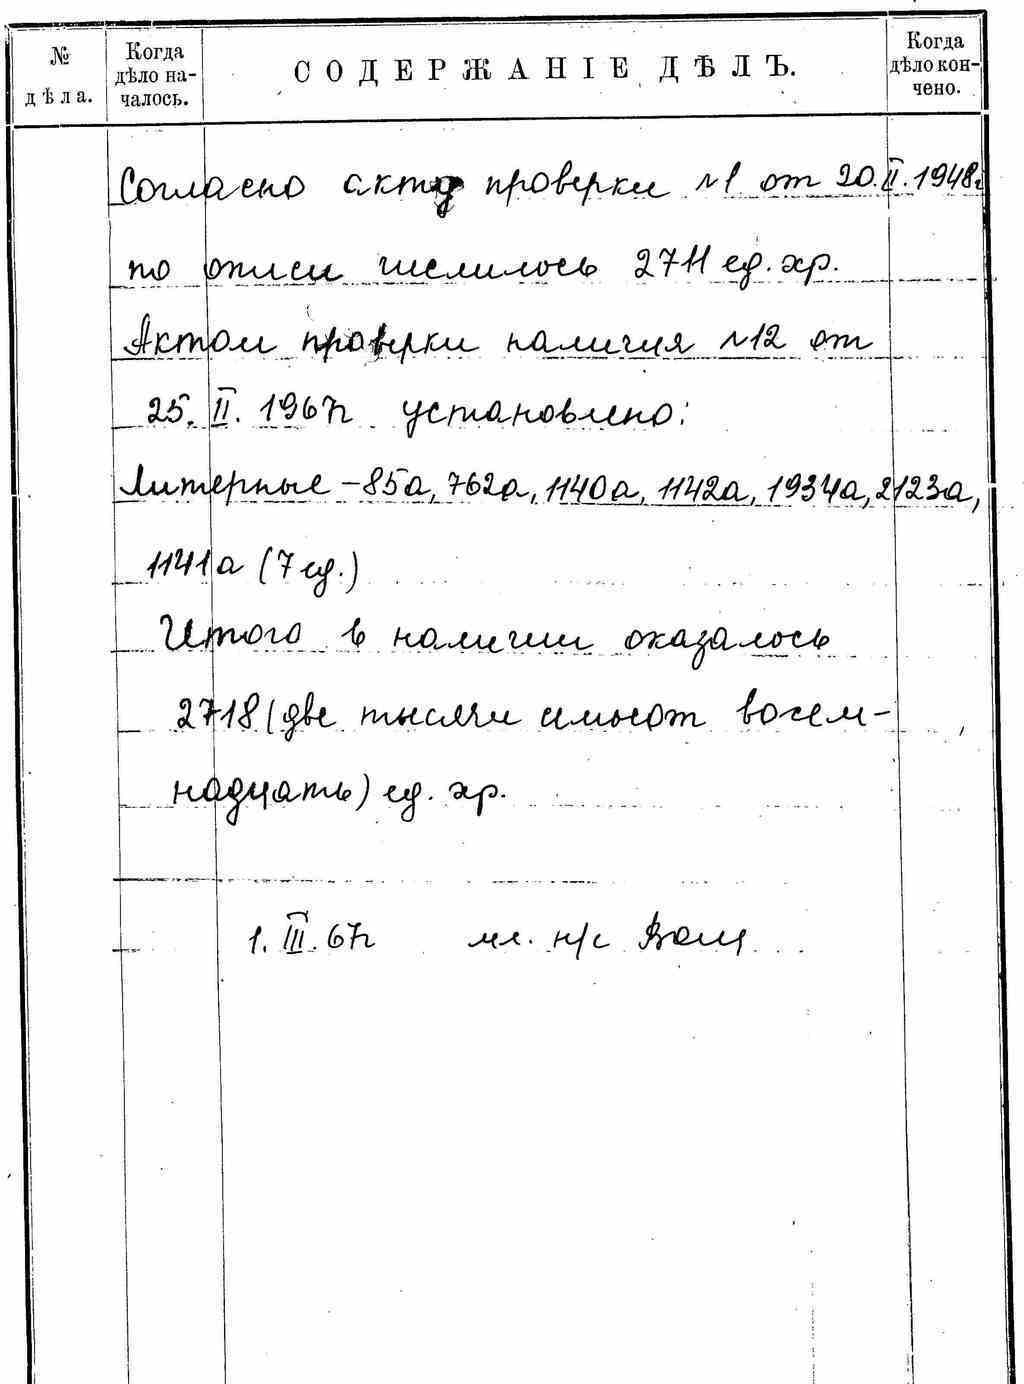 № дѣла.
Когда дѣло на-чалось.
СОДЕРЖАНІЕ ДѢЛЪ.
Когда дѣло кон-чено.
Согласно акту проверки №1 от 20.II.1948г
по описи числилось 2711 ед. хр.
Актом проверки наличия №12 от
25.II.1967г установлено:
Литерные – 85а, 762а, 1140а, 1142а, 1934а, 2123а,
1141а (7 ед.)
Итого в наличии оказалось
2718 (две тысячи семьсот восем-
надцать) ед. хр.
1.III.67г мл. н/с